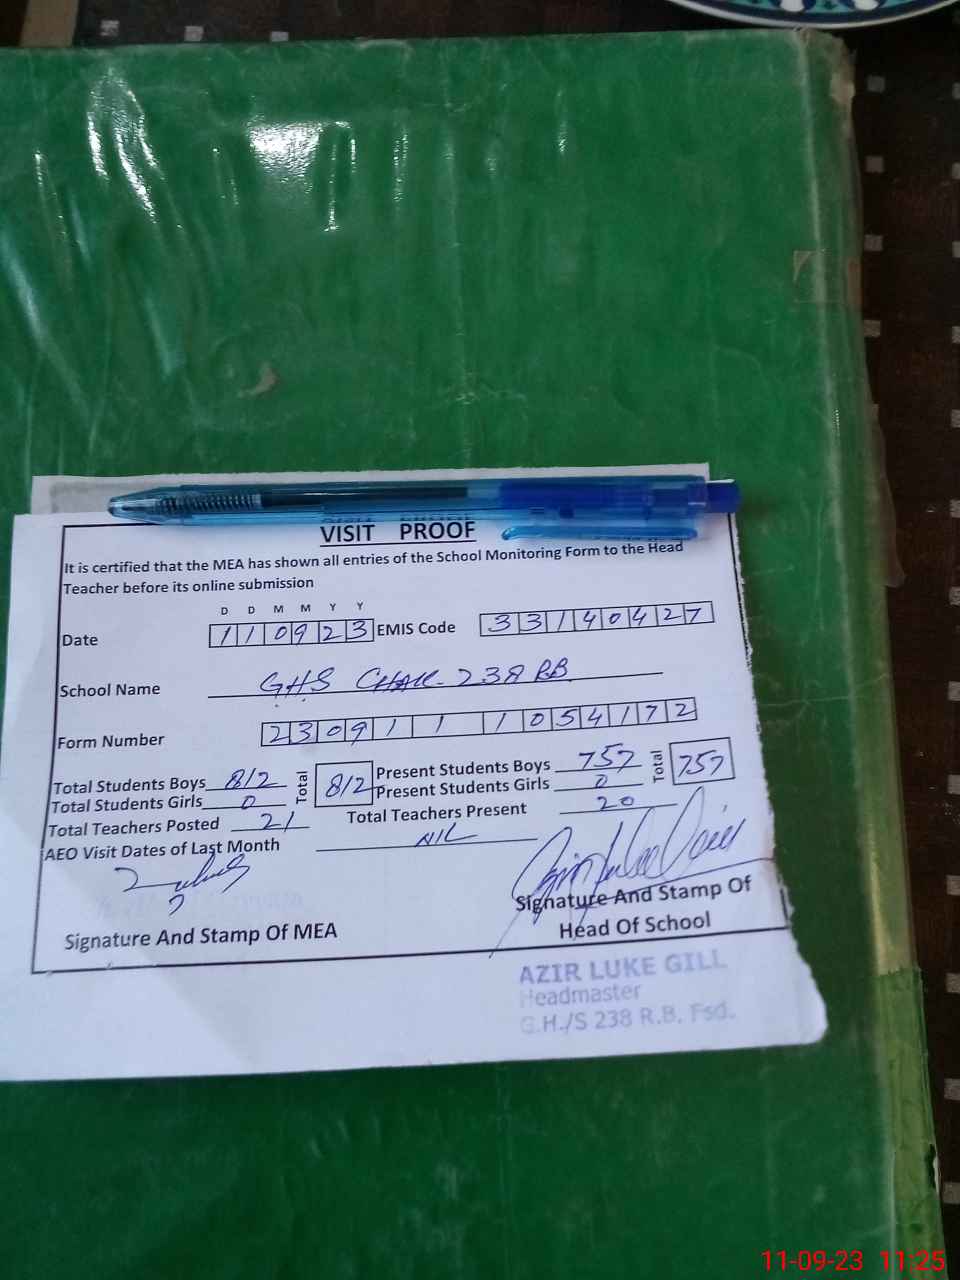 VISIT PROOF
It is certified that the MEA has shown all entries of the School Monitoring Form to the Head
Teacher before its online submission
D D M M Y Y
Date 110923 EMIS Code 33140427
School Name GHS CHAK 238 RB
Form Number 2309111054172
Total Students Boys 812 Total 812 Present Students Boys 757 Total 757
Total Students Girls 0 Present Students Girls 0
Total Teachers Posted 21 Total Teachers Present 20
AEO Visit Dates of Last Month NIL
Signature And Stamp Of MEA
Signature And Stamp Of
Head Of School
AZIR LUKE GILL
Headmaster
G.H./S 238 R.B. Fsd.
11-09-23 11:25